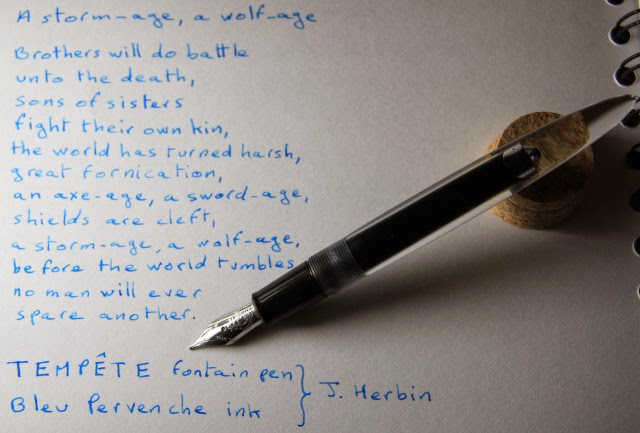 A storm-age, a wolf-age
Brothers will do battle
unto the death,
sons of sisters
fight their own kin,
the world has turned harsh,
great fornication,
an axe-age, a sword-age,
shields are cleft,
a storm-age, a wolf-age,
before the world tumbles
no man will ever
spare another.
TEMPÊTE fontain pen
Bleu Pervenche ink
J. Herbin